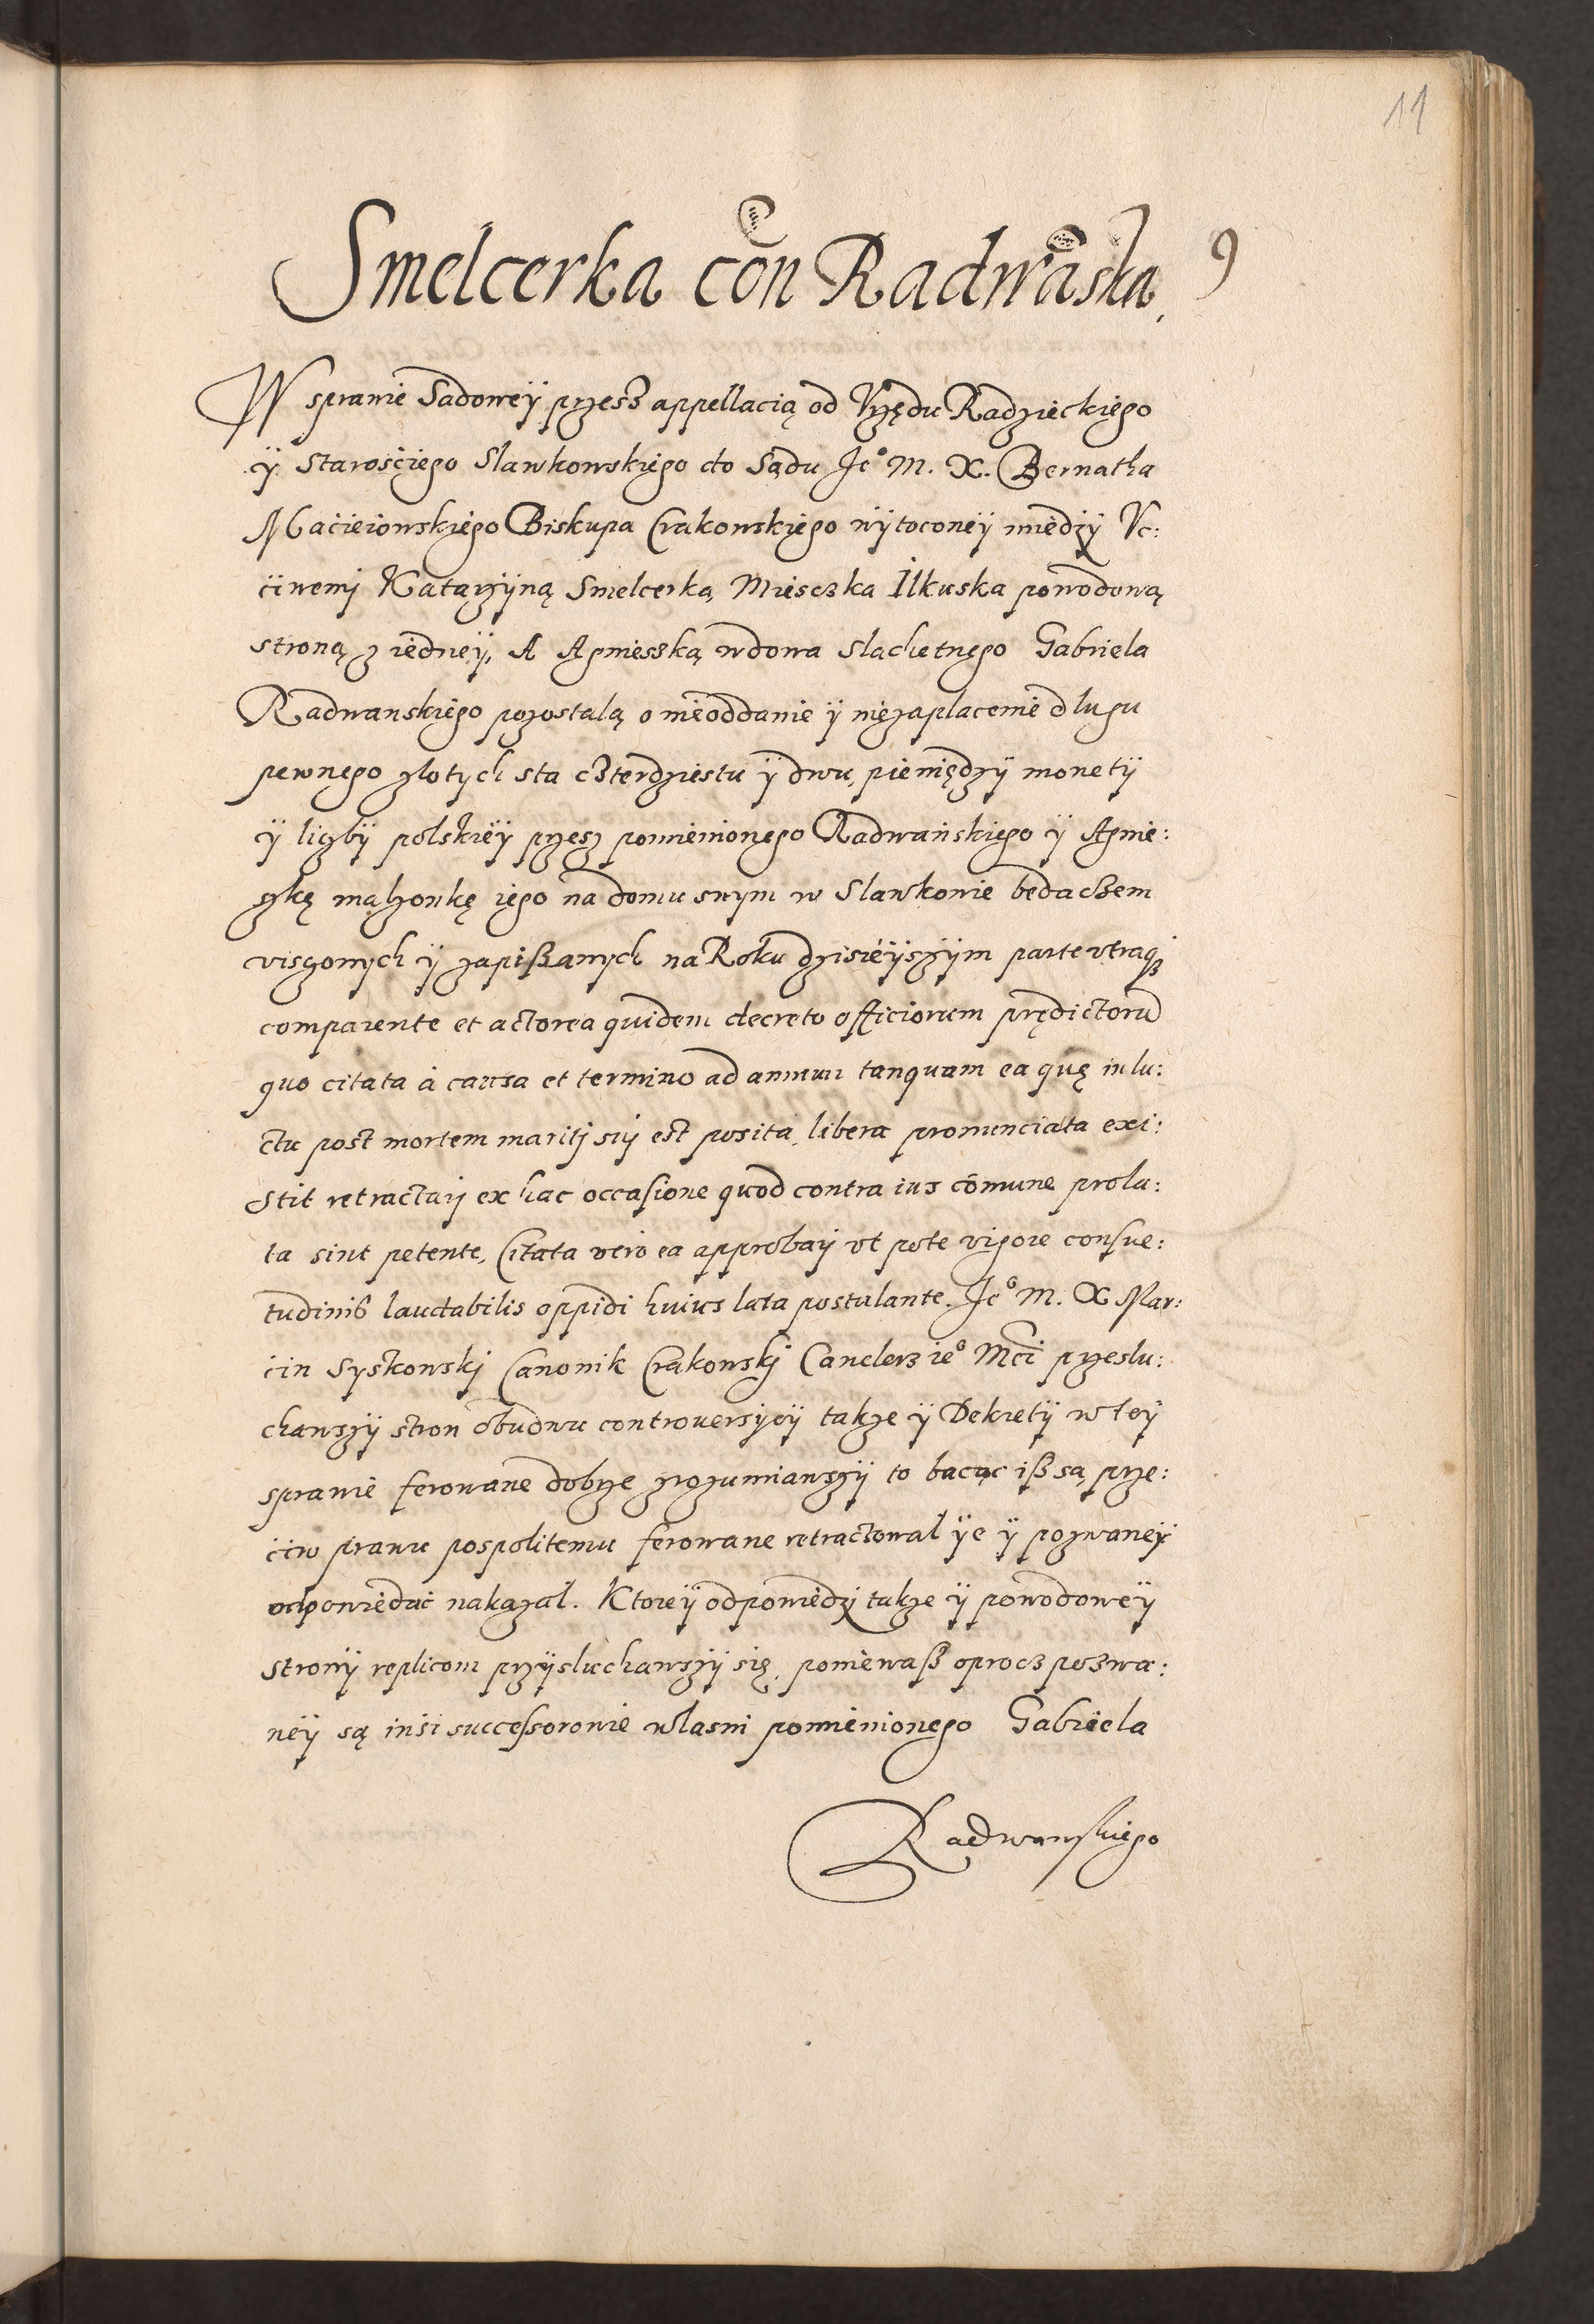 11
Smelcerka cōn Radwāska 9
W sprawie Sadoweÿ przesz appellacią od Vrzędu Radzieckiego
ÿ Starosćiego Slawkowskiego do Sądu Je° M. X. Bernatha
Maciejowskiego Biskupa Crakowskiego wÿtoconeÿ miedzÿ Vc:
ciwemj Katarzÿną Smelcerką Miesczka Ilkuska powodową
stroną z iedneÿ, A Agnieszką wdowa Slachetnego Gabriela
Radwanskiego pozostalą o nieoddanie ÿ niezaplacenie dlugu
pewnego zlotych sta czterdziestu ÿ dwu, pieniędzÿ monetÿ
ÿ liczbÿ polskieÿ przesz pomienionego Radwańskiego ÿ Agnie:
szkę mązonkę iego na domu swym w Slawkowie bedaczem
viszonych ÿ zapißanych na Roku dzisieÿszÿm parte vtraqꝫ
comparente et actorea quidem decreto officiorum prędictorū
quo citata à causa et termino ad annum tanquam ea quę in lu:
ctu post mortem maritj suj est posita, libera pronunciata exi:
stit retractarj ex hac occasione quod contra ius cōmune prola:
ta sint petente, Citata vero ea approbarj vt pote vigore consue:
tudinis laudabilis oppidi huius lata postulante. Je° M. X Mar:
cin Syskowskj Canonik Crakowskj Canclerz ie° Mci przeslu:
chawszÿ stron obudwu controuersÿeÿ takze ÿ Dekretÿ w teÿ
sprawie ferowane dobrze zrozumiawszÿ to bacąc iß są prze:
ciw prawu pospolitemu ferowane retractowal ÿe ÿ pozwaneÿ
odpowiedać nakazal. Ktoreÿ odpowiedzj takze ÿ powodoweÿ
stronÿ replicom przÿsluchawszÿ się, poniewaß oprocz pozwa:
neÿ są inśi successorowie wlasni pomienionego Gabriela
Radwanskiego